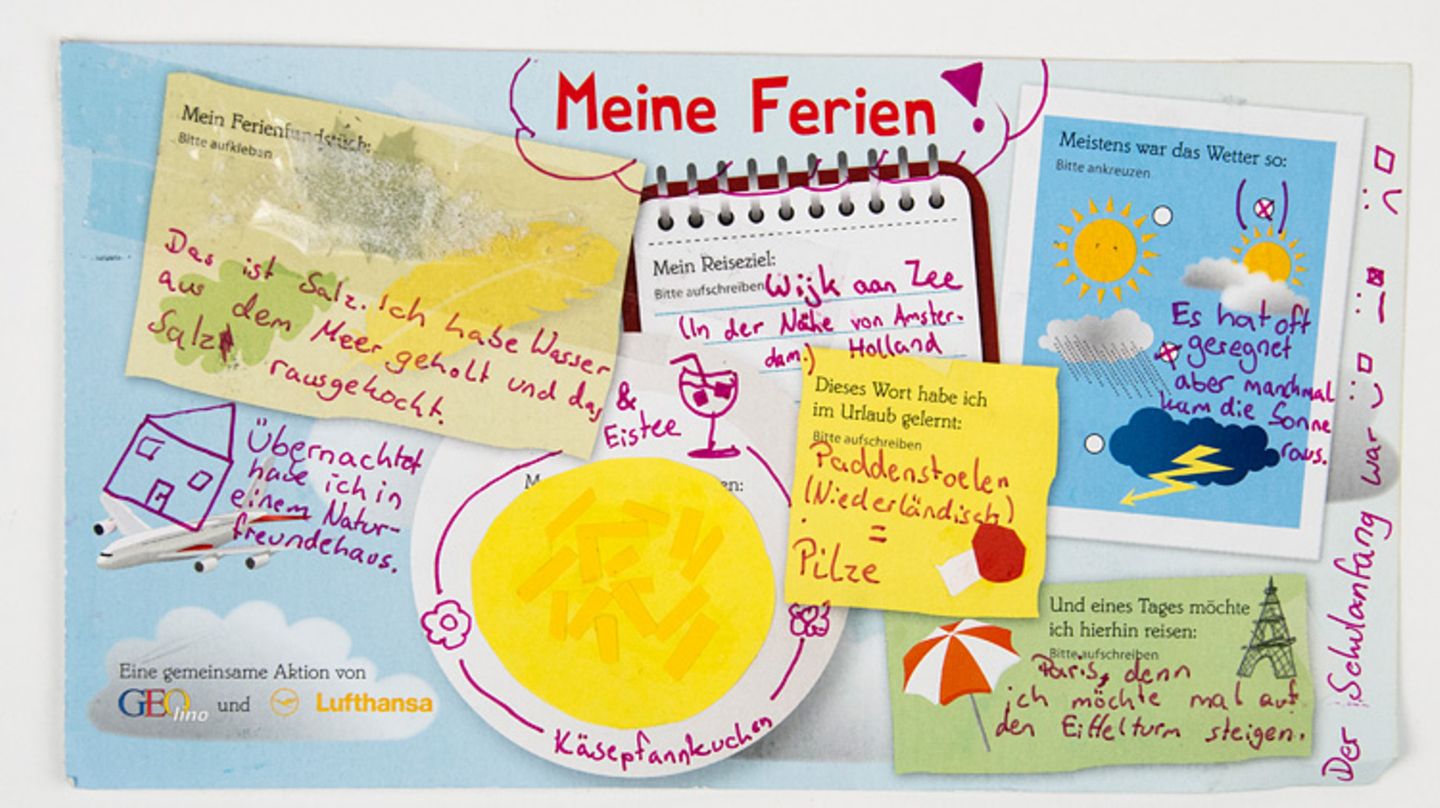 Meine Ferien!
Mein Ferienfundstück:
Bitte aufkleben
Das ist Salz. Ich habe Wasser
aus dem Meer geholt und das
Salz rausgekocht.
Mein Reiseziel:
Bitte aufschreiben Wijk aan Zee
(In der Nähe von Amster-
dam.) Holland
Meistens war das Wetter so:
Bitte ankreuzen
Es hat oft
geregnet
aber manchmal
kam die Sonne
raus.
Dieses Wort habe ich
im Urlaub gelernt:
Bitte aufschreiben
Paddenstoelen
(Niederländisch)
=
Pilze
& Eistee
Käsepfannkuchen
Übernachtet
habe ich in
einem Natur-
freundehaus.
Eine gemeinsame Aktion von
GEOlino und Lufthansa
Und eines Tages möchte
ich hierhin reisen:
Bitte aufschreiben
Paris, denn
ich möchte mal auf
den Eiffelturm steigen.
Der Schulanfang war